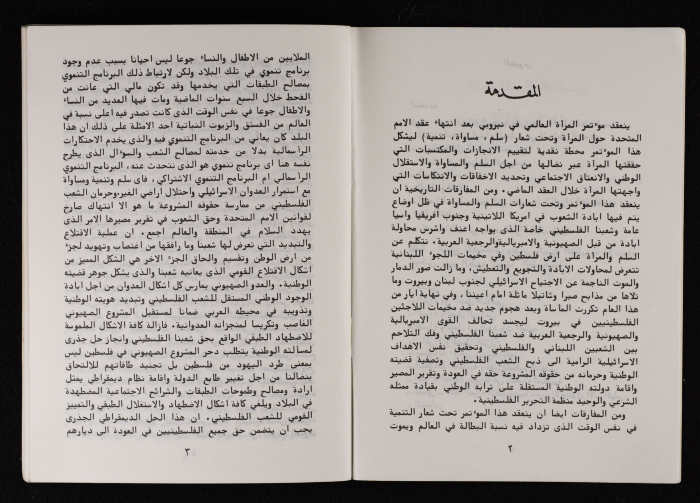 المقدمة
ينعقد مؤتمر المرأة العالمي في نيروبي بعد انتهاء عقد الامم
المتحدة حول المرأة وتحت شعار (سلم، مساواة، تنمية) ليشكل
هذا المؤتمر محطة نقدية لتقييم الانجازات والمكتسبات التي
حققتها المرأة عبر نضالها من اجل السلم والمساواة والاستقلال
الوطني والانعتاق الاجتماعي وتحديد الاخفاقات والانتكاسات التي
واجهتها المرأة خلال العقد الماضي. ومن المفارقات التاريخية ان
ينعقد هذا المؤتمر وتحت شعارات السلم والمساواة في ظل اوضاع
يتم فيها ابادة الشعوب في امريكا اللاتينية وجنوب افريقيا واسيا
عامة وشعبنا الفلسطيني خاصة الذى يواجه اعنف واشرس محاولة
ابادة من قبل الصهيونية والامبريالية والرجعية العربية، نتكلم عن
السلم والمرأة على ارض فلسطين وفي مخيمات اللجوء اللبنانية
تتعرض لمحاولات الابادة والتجويع والتعطيش، وما زالت صور الدمار
والموت الناجمة عن الاجتياح الاسرائيلي لجنوب لبنان وبيروت وما
تلاها من مذابح صبرا وشاتيلا ماثلة امام اعيننا، وفي نهاية ايار من
هذا العام تكررت المأساة وبعد هجوم جديد ضد مخيمات اللاجئين
الفلسطينيين في بيروت ليجسد تحالف القوى الامبريالية
والصهيونية والرجعية العربية ضد شعبنا الفلسطيني وفك التلاحم
بين الشعبين اللبناني والفلسطيني وتحقيق نفس الاهداف
الاسرائيلية الرامية الى ذبح الشعب الفلسطيني وتصفية قضيته
الوطنية وحرمانه من حقوقه المشروعة حقه في العودة وتقرير المصير
واقامة دولته الوطنية المستقلة على ترابه الوطني بقيادة ممثله
الشرعي والوحيد منظمة التحرير الفلسطينية.
ومن المفارقات ايضا ان ينعقد هذا المؤتمر تحت شعار التنمية
في نفس الوقت الذى تزداد فيه نسبة البطالة في العالم ويموت
٢
الملايين من الاطفال والنساء جوعا ليس احيانا بسبب عدم وجود
برنامج تنموي في تلك البلاد ولكن لارتباط ذلك البرنامج التنموي
بمصالح الطبقات التي يخدمها وقد تكون مالي التي عانت من
القحط خلال السبع سنوات الماضية ومات فيها العديد من النساء
والاطفال جوعا في نفس الوقت الذى كانت تصدر فيه اعلى نسبة في
العالم من الفستق والزيوت النباتية احد الامثلة على ذلك ان هذا
البلد كان يعاني من البرنامج التنموي فيه والذى يخدم الاحتكارات
الرأسمالية بدلا من خدمته لمصالح الشعب والسؤال الذى يطرح
نفسه هنا اى برنامج تنموي هو الذى نتحدث عنه، البرنامج التنموي
الرأسمالي ام البرنامج التنموي الاشتراكي، فاى سلم وتنمية ومساواة
مع استمرار العدوان الاسرائيلي واحتلال اراضي الغير وحرمان الشعب
الفلسطيني من ممارسة حقوقه المشروعة ما هو الا انتهاك صارخ
لقوانين الامم المتحدة وحق الشعوب في تقرير مصيرها الامر الذى
يهدد السلام في المنطقة والعالم اجمع. ان عملية الاقتلاع
والتبديد التي تعرض لها شعبنا وما رافقها من اغتصاب وتهويد لجزء
من ارض الوطن وتقسيم والحاق الجزء الاخر هي الشكل المميز من
اشكال الاقتلاع القومي الذى يعانيه شعبنا والذى يشكل جوهر قضيته
الوطنية. والعدو الصهيوني يمارس كل اشكال العدوان من اجل ابادة
الوجود الوطني المستقل للشعب الفلسطيني وتبديد هويته الوطنية
وتذويبه في محيطه العربي ضمانا لمستقبل المشروع الصهيوني
الغاصب وتكريسا لمنجزاته العدوانية. فازالة كافة الاشكال الملموسة
للاضطهاد الطبقي الواقع بحق شعبنا الفلسطيني وانجاز حل جذرى
لمسألته الوطنية يتطلب دحر المشروع الصهيوني في فلسطين ليس
بمعنى طرد اليهود من فلسطين بل تجنيد طاقاتهم للالتحاق
بنضالنا من اجل تغيير طابع الدولة واقامة نظام ديمقراطي يمثل
ارادة ومصالح وطموحات الطبقات والشرائح الاجتماعية المضطهدة
في البلاد ويلغي كافة اشكال الاضطهاد والاستغلال الطبقي والتمييز
القومي للشعب الفلسطيني. ان هذا الحل الديمقراطي الجذرى
يجب ان يتضمن حق جميع الفلسطينيين في العودة الى ديارهم
٣